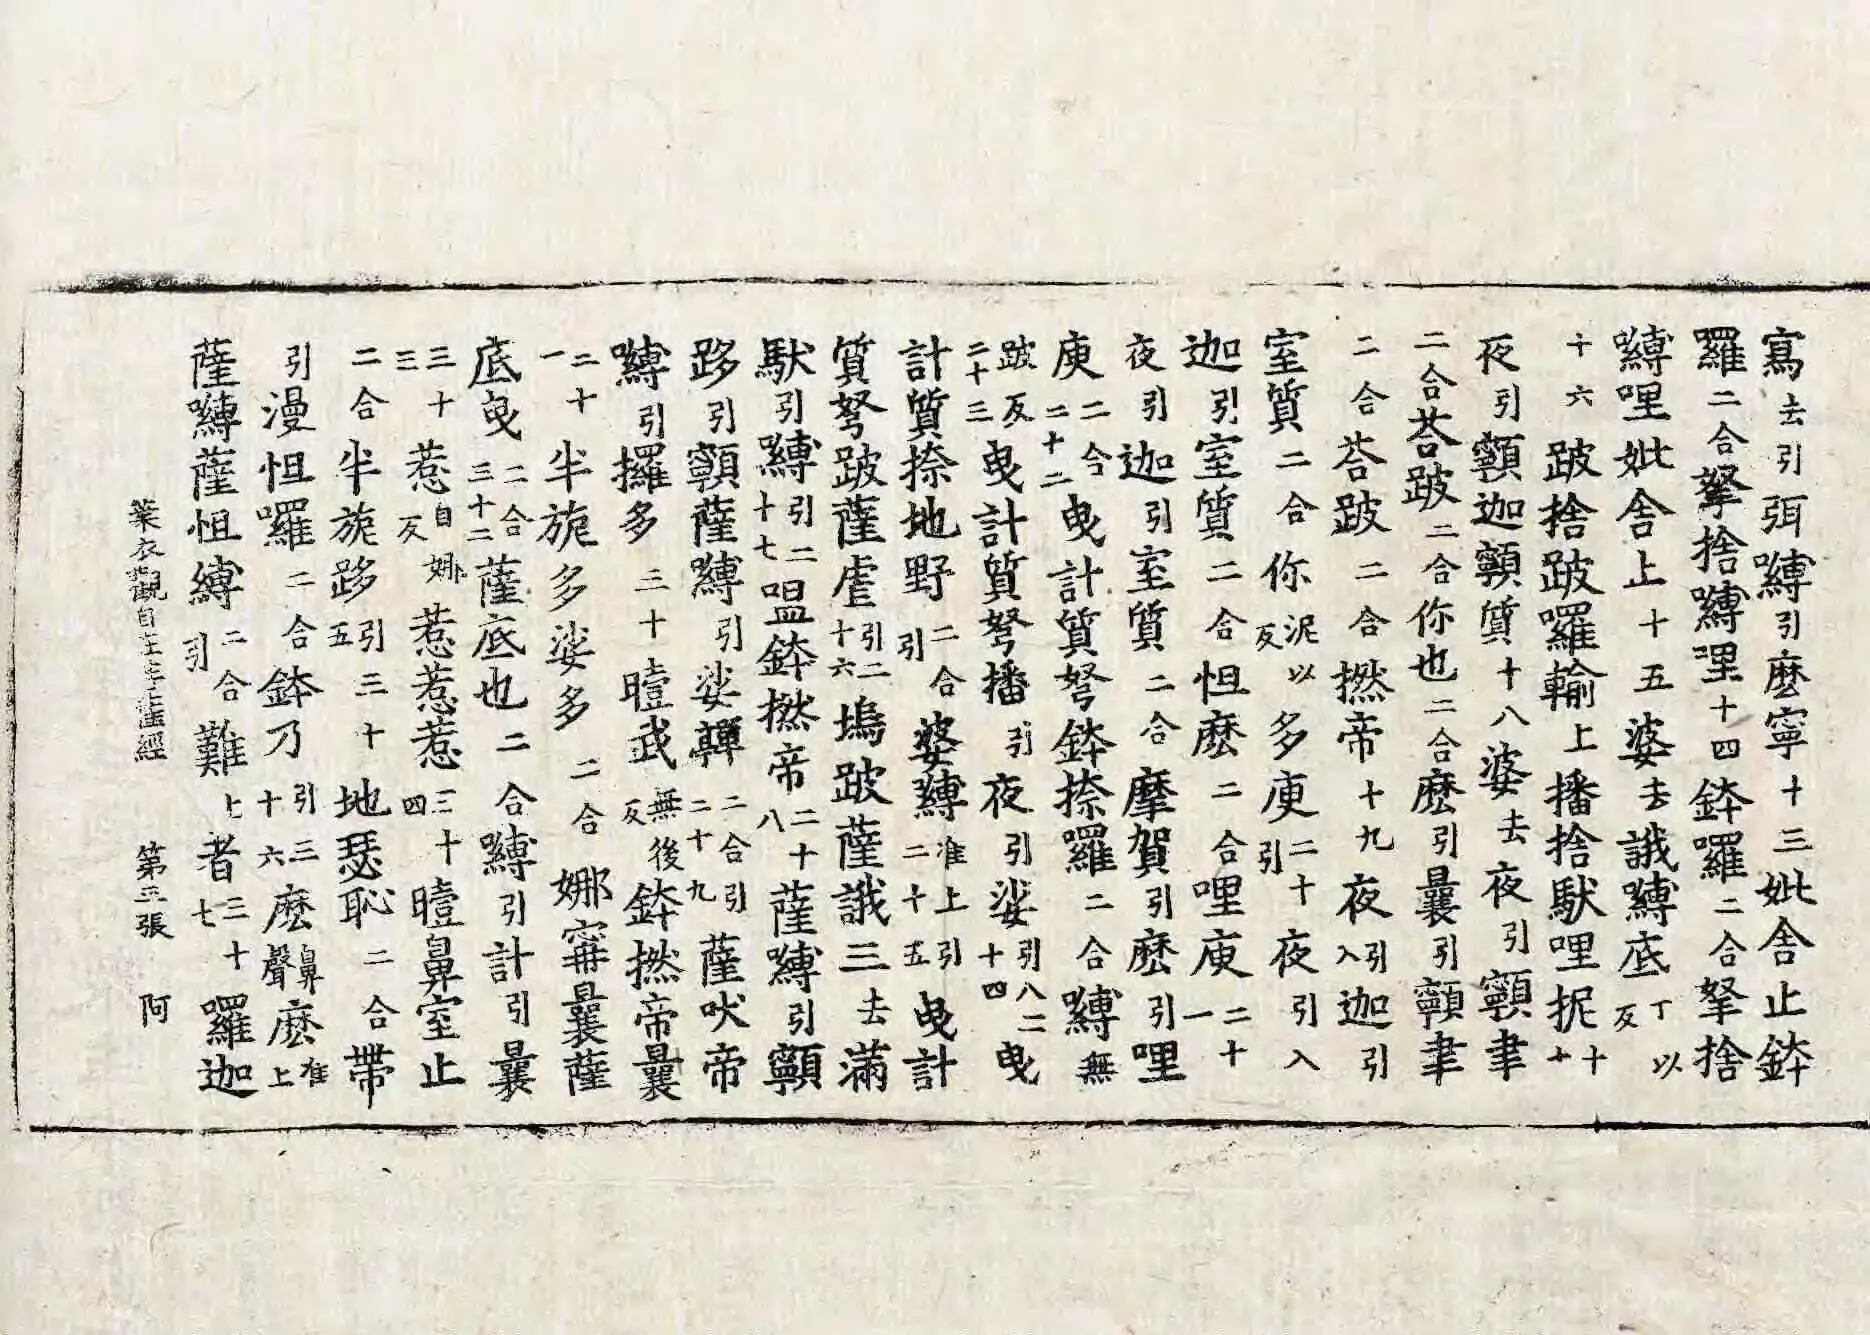 寫去引弭嚩引麽寧十三妣舍止鉢
羅二合拏捨嚩哩十四鉢羅二合拏捨
嚩哩妣舍上十五婆去誐嚩底丁以反
十六跛捨跛羅輸上播捨馱哩抳十
夜引顭迦顭質十八婆去夜引顭聿
二合荅跛二合你也二合麽引曩引顭聿
二合荅跛二合撚帝十九夜引入迦引
室質二合你泥以反多庾引二十夜引入
迦引室質二合怛麽二合哩庾二十一
夜引迦引室質二合摩賀引麽引哩
庾二合二十二曳計質弩鉢捺羅二合嚩無
跛反二十三曳計質弩播引夜引娑引八二十四曳
計質捺地野二合引婆嚩准上引二十五曳計
質弩跛薩虐引二十六塢跛薩誐三去滿
馱引嚩引二十七嗢鉢撚帝二十八薩嚩引顭
跢引顭薩嚩引娑鞸二合引二十九薩吠帝
嚩引攞多三十曀武無後反鉢撚帝曩
二十一半旎多多娑多二合娜寗曩薩
底曳二合三十二薩底也二合嚩引計引曩
三十三惹自娜反惹惹惹三十四曀鼻室止
二合半旎跢引三十五地瑟恥二合帶
引漫怛羅二合鉢乃引三十六麽鼻聲麽准上
薩嚩薩怛嚩二合引難上者三十七羅迦
葉衣觀自在菩薩經　第三張　阿